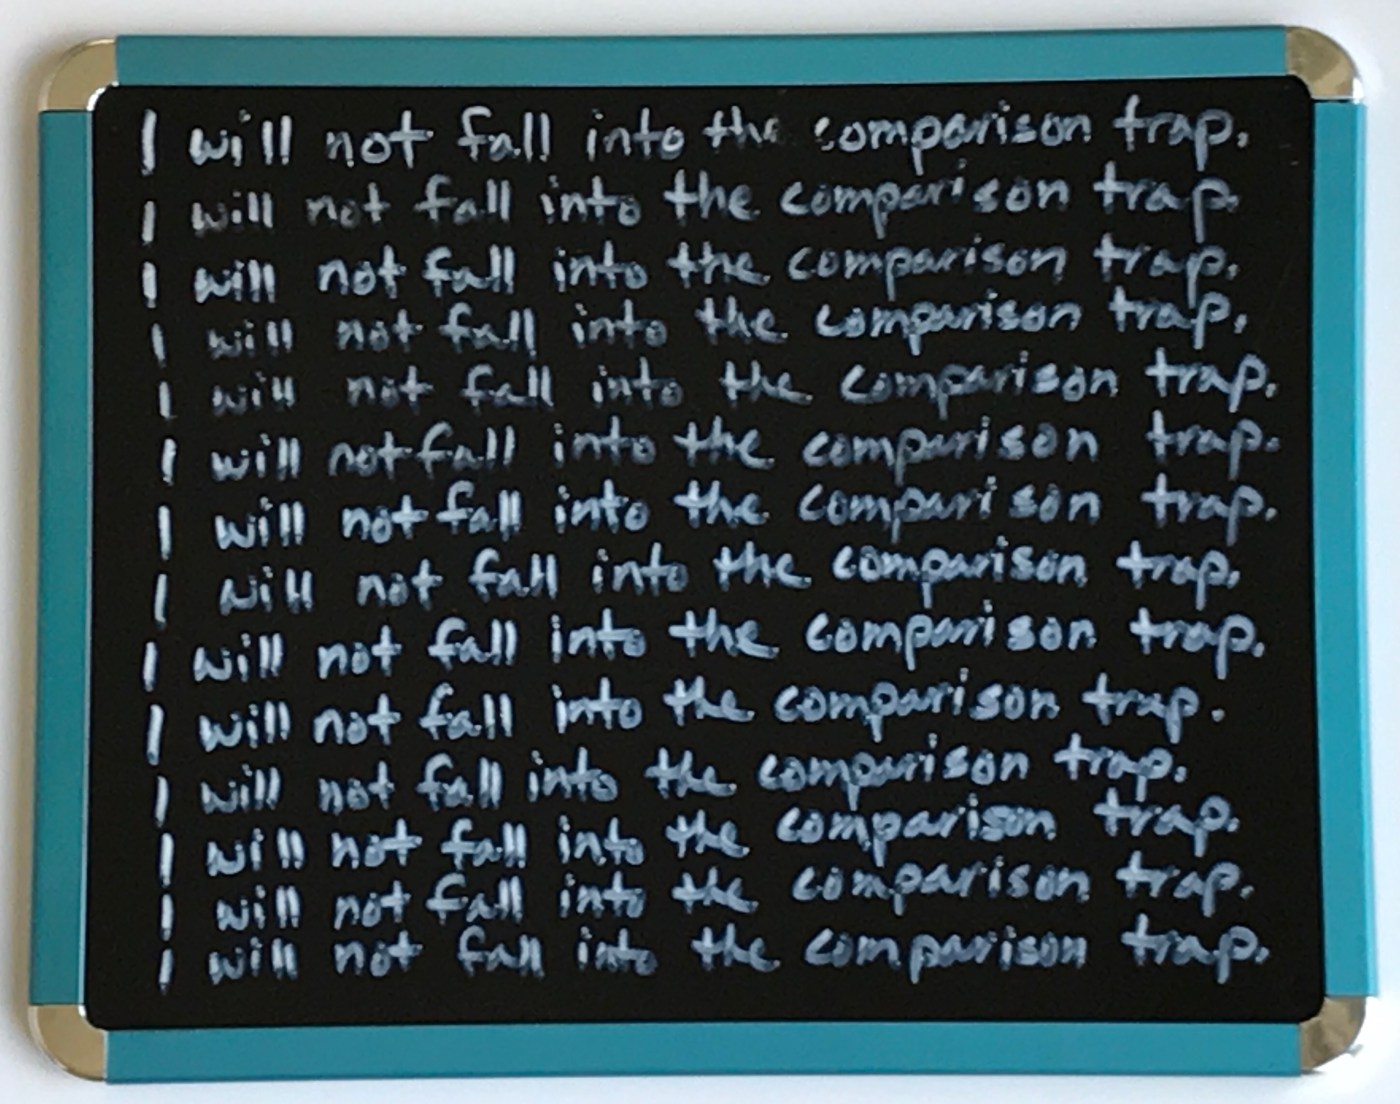 I will not fall into the comparison trap.
I will not fall into the comparison trap.
I will not fall into the comparison trap.
I will not fall into the comparison trap.
I will not fall into the comparison trap.
I will not fall into the comparison trap.
I will not fall into the comparison trap.
I will not fall into the comparison trap.
I will not fall into the comparison trap.
I will not fall into the comparison trap.
I will not fall into the comparison trap.
I will not fall into the comparison trap.
I will not fall into the comparison trap.
I will not fall into the comparison trap.